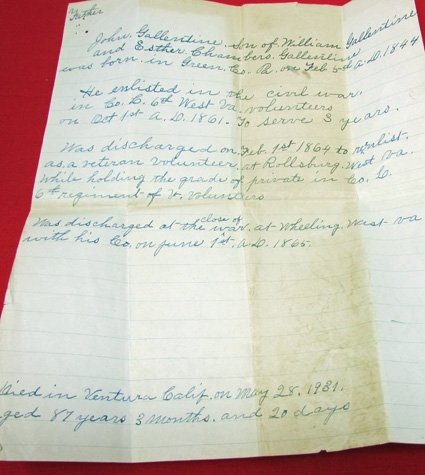 Father
John Gallentine Son of William Gallentine
and Esther Chambers Gallentine
was born in Green. Co. Pa. on Feb 5th A.D. 1844
He enlisted in the civil war.
in Co. C. 6th West Va. volunteers
on Oct 1st A.D. 1861. To serve 3 years.
Was discharged on Feb. 1st 1864 to reenlist.
as a veteran volunteer, at Rollsburg West Va.
While holding the grade of private in Co. C.
6th regiment of V. Volunteers
Was discharged at the close of war. at Wheeling West Va
with his Co. on June 1st. A.D. 1865.
Died in Ventura Calif. on May 28, 1931.
aged 87 years 3 months. and 20 days